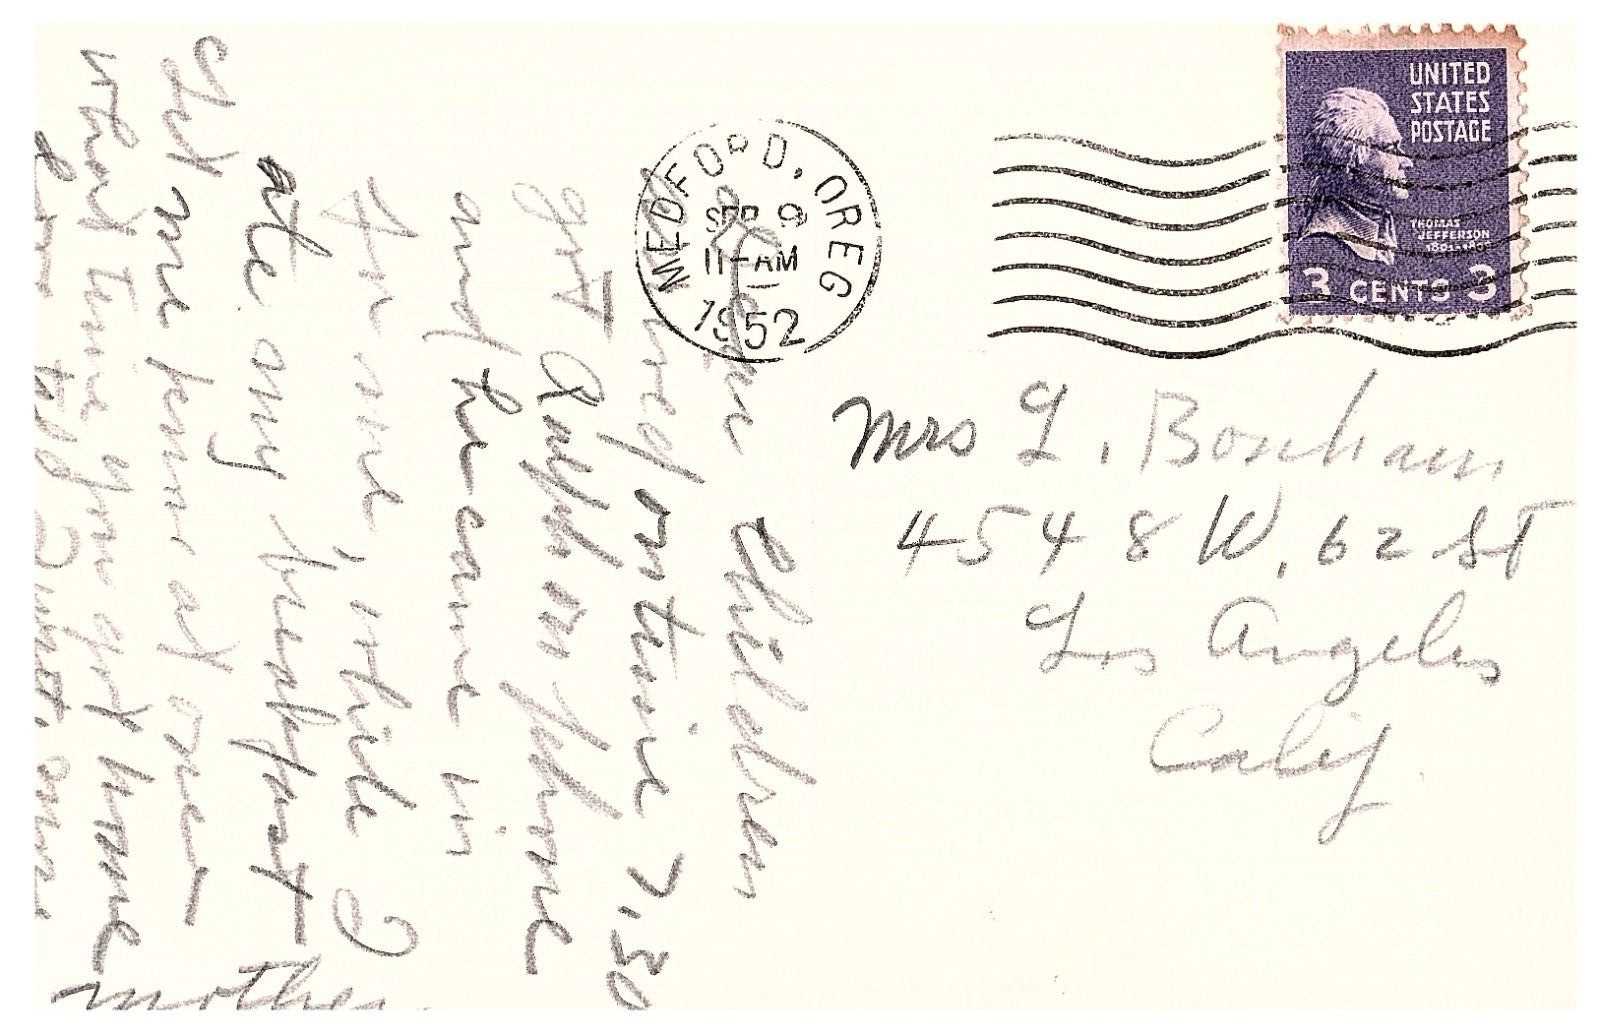 UNITED
STATES
POSTAGE
THOMAS
JEFFERSON
1801-1809
3 CENTS 3
MEDFORD, OREG
SEP 9
11-AM
1952
Mrs L. Bonham
4548 W. 62 St
Los Angeles
Calif.
Dear
Children
Arrived on time 7,30
got Ralph on phone
and he came in
for me while I
ate my breakfast
Let me know at once
what time you got home
Love to all
Mother